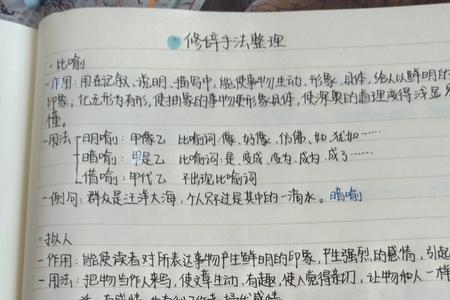 修辞手法整理
·比喻
-作用:用在记叙、说明、描写中,能使事物生动、形象、具体,给人以鲜明的
印象,化无形为有形,使抽象的事物更形象具体,使深奥的道理变得浅显易
懂。
-用法 明喻:甲像乙 比喻词:像、好像、仿佛、如、犹如……
暗喻:甲是乙 比喻词:是、变成、改为、成为、成了……
借喻:甲代乙 不出现比喻词
-例句:群众是汪洋大海,个人只不过是其中的一滴水。暗喻
·拟人
-作用:能使读者对所表达事物产生鲜明的印象,产生强烈的感情,引起
-用法:把物当作人来写,使文章生动、有趣,使人觉得亲切,让物和人一样